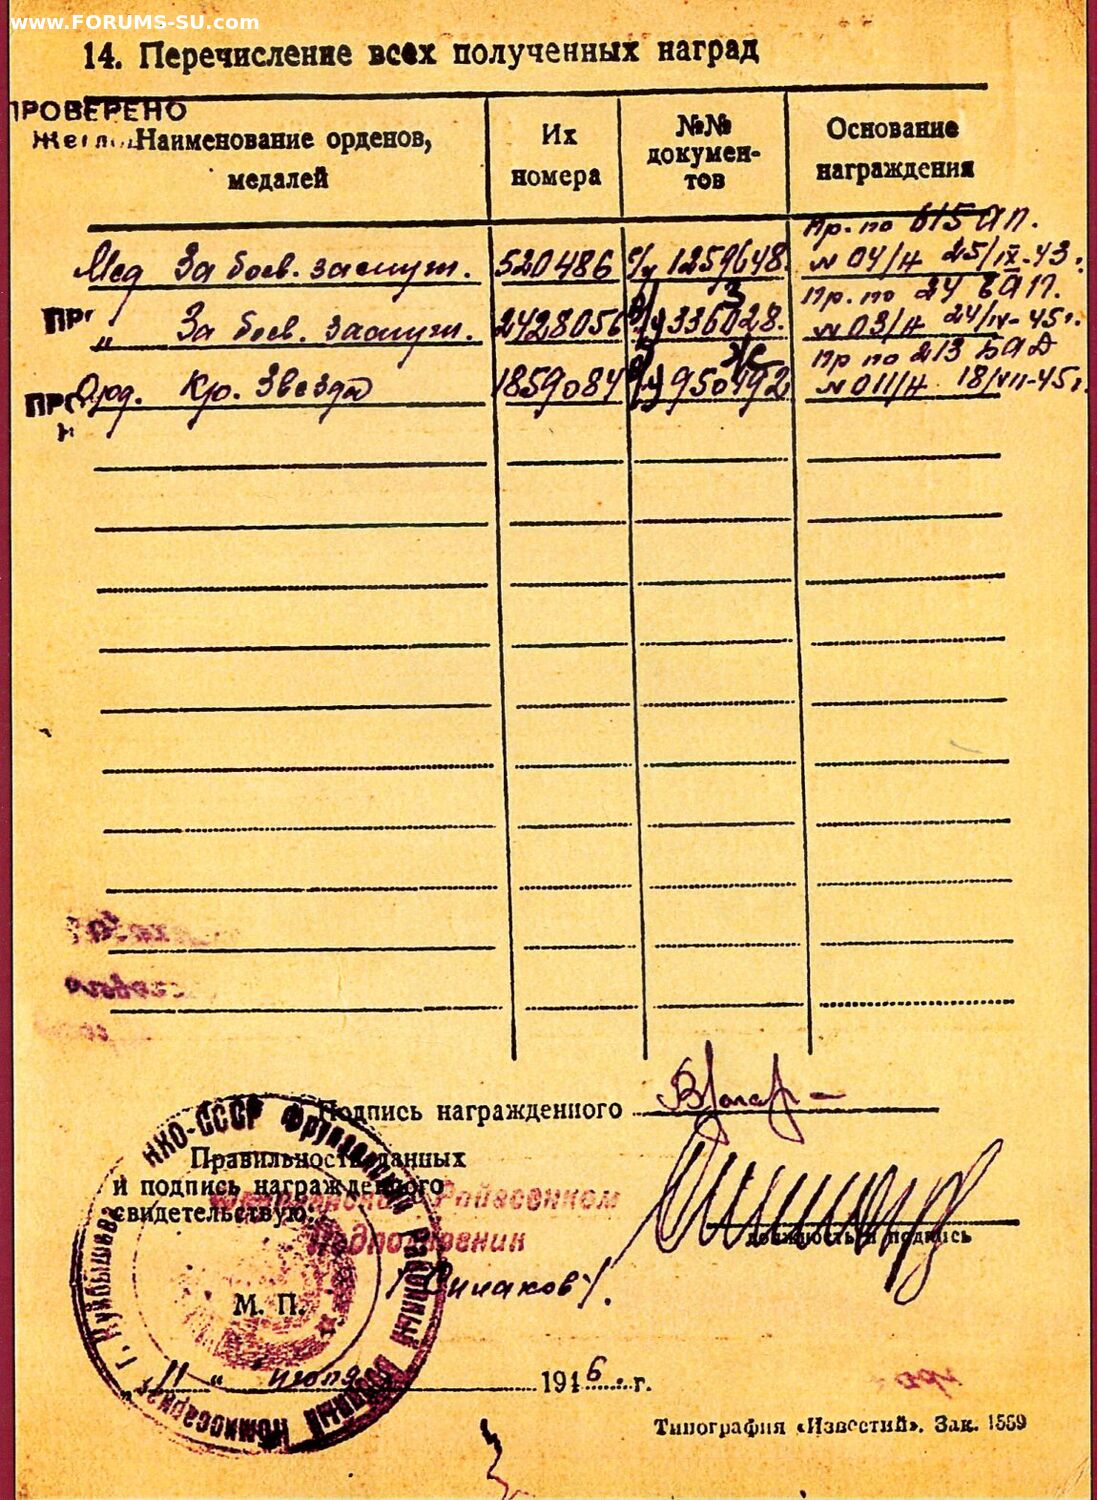 www.FORUMS-SU.com
14. Перечисление всех полученных наград
ПРОВЕРЕНО
Наименование орденов, медалей
Их номера
№№ документов
Основание награждения
Мед За боев. заслуг. 520486 1259648 Пр. по 615 АП. № 04/н 25/IX-43г.
ПР „ За боев. заслуг. 2428056 336028. Пр. по 24 БАП. № 03/н 24/IV-45г.
ПРО Орд. Кр. Звезда 1859084 950492 Пр по 213 БАД № 011/н 18/VII-45г.
Подпись награжденного
Правильность данных
и подпись награжденного
свидетельствую:
Райвоенком
Подполковник
должность и подпись
М. П.
НКО-СССР Фрунзенский Районный Военный Комиссариат г. Куйбышева
„11“ июля 1946 г.
Типография «Известий». Зак. 1559